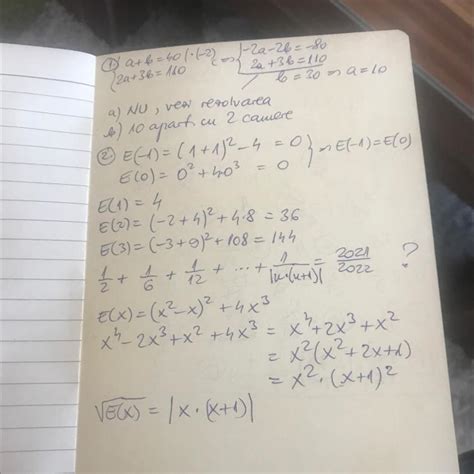 ① { a+b=40 | ·(-2) ⇔ { -2a-2b=-80
2a+3b=110 2a+3b=110
b=30 ⇒ a=10
a) NU, vezi rezolvarea
b) 10 apart. cu 2 camere
② E(-1)=(1+1)²-4=0 } ⇒ E(-1)=E(0)
E(0)=0²+4·0³=0
E(1)=4
E(2)=(-2+4)²+4·8=36
E(3)=(-3+9)²+108=144
1/2 + 1/6 + 1/12 + ... + 1/|x·(x+1)| = 2021/2022 ?
E(x)=(x²-x)²+4x³
x⁴-2x³+x²+4x³ = x⁴+2x³+x²
= x²(x²+2x+1)
= x²·(x+1)²
√E(x) = |x·(x+1)|